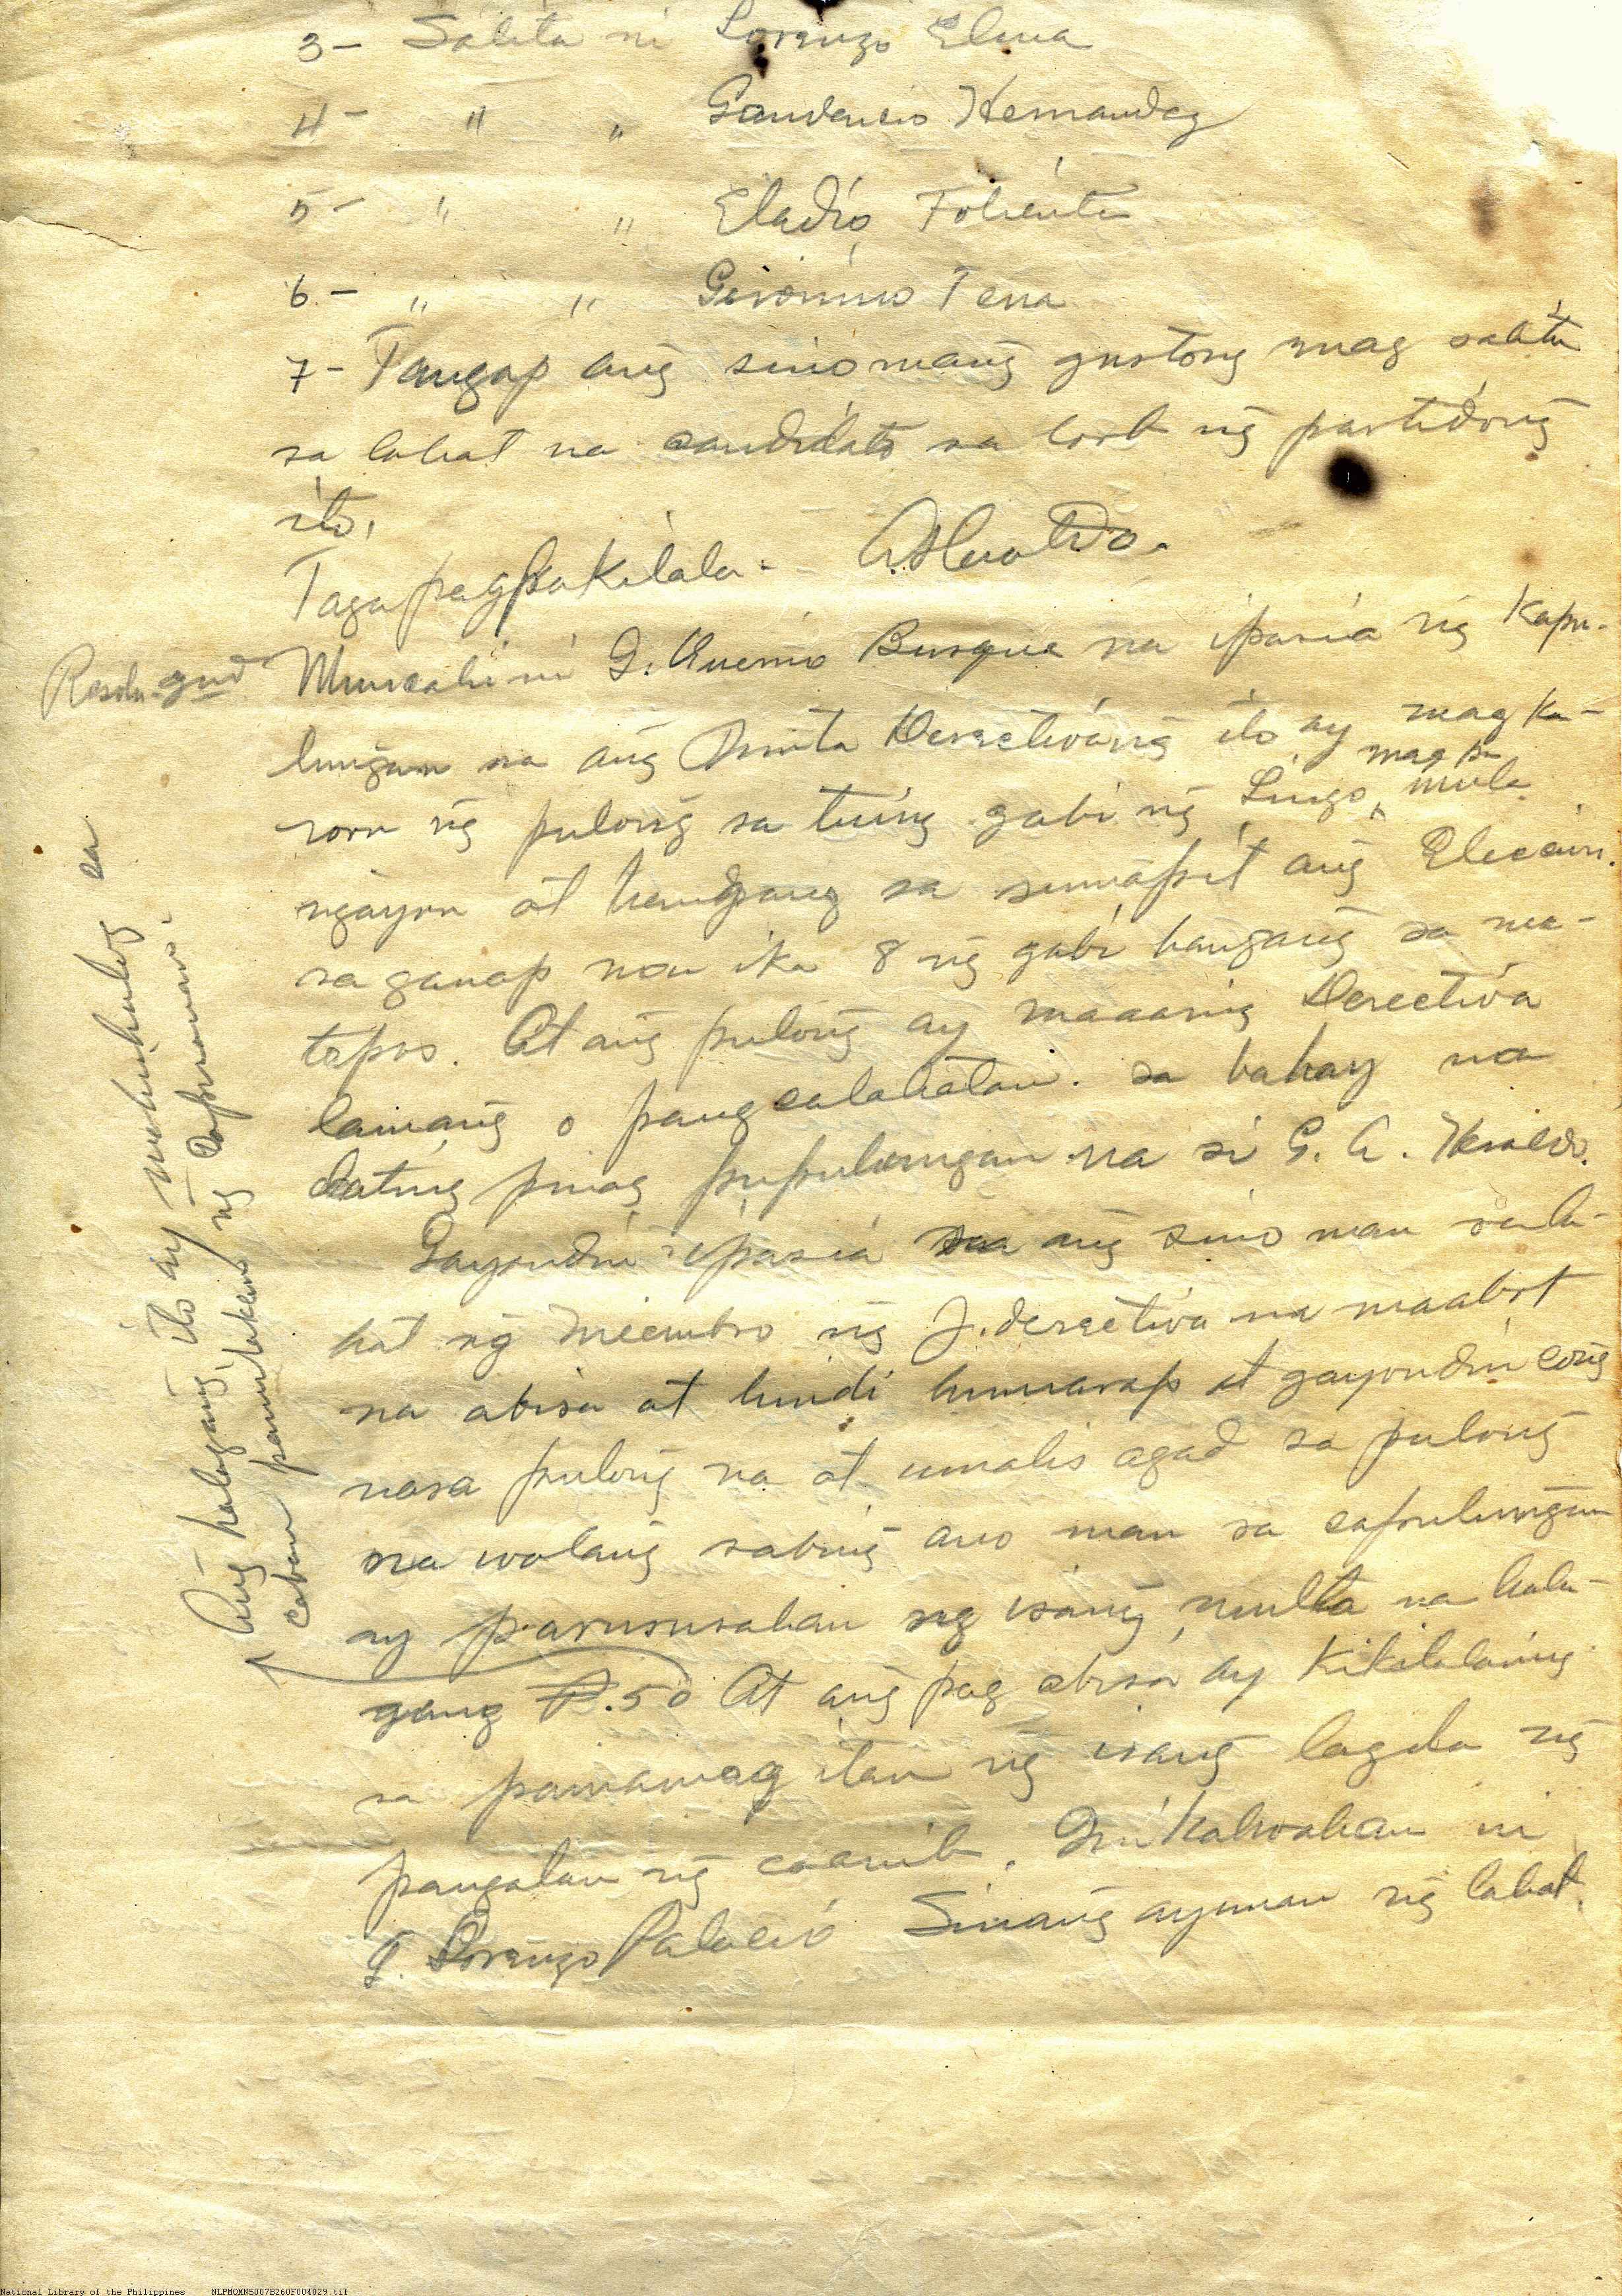 3- Salita ni Lorenzo Elma
4- " " Gaudencio Hernandez
5- " " Eladio Foliente
6- " " Geronimo Tena
7- Tangap ang̃ sinomang̃ gustong mag salita
sa lahat na candidato sa loob ng̃ partidong̃
ito.
Tagapagpakilala -
Muncahi ni G. Busque na ipasia ng̃ Kapu-
lung̃an na ang̃ Junta Derectivang̃ ito ay mag ka-
roon ng̃ pulong̃ sa tuing gabi ng̃ Lingo, mag pa mula
ng̃ayon at hangang sa sumapit ang̃ Eleccion.
sa ganap na ika 8 ng̃ gabi hangang̃ sa ma-
tapos. At ang̃ pulong̃ ay maaaring̃ Derectiva
lamang̃ o pangcalahatan. sa bahay na
dating pinag pupulungan na si G. A. Heraldo.
Gayondin ipasia na ang̃ sino man sa la-
hat ng̃ miembro ng̃ J. derectiva na maabot
na abiso at hindi humarap at gayondin cong̃
nasa pulong̃ na at umalis agad sa pulong̃
na walang̃ sabing̃ ano man sa capulung̃an
ay parurusahan ng isang̃ multa na hala-
gang ₱.50 At ang̃ pag abiso ay Kikilalaning
sa pamamag itan ng̃ isang̃ lagda ng̃
pangalan ng̃ caanib. Pinikatwahan ni
G. Lorenzo Palacio Sinang̃ ayunan ng̃ lahat.
Ang̃ halagang̃ ito ay mahuhulog sa
caban ng̃ Capisanan.
National Library of the Philippines NLPMQMN5007B260F004029.tif